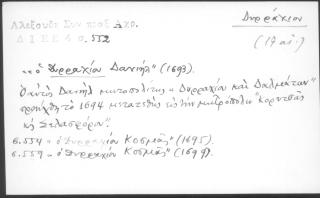 Αλεξούδη Συν πεοξ Αχο.
Δυρράχιον
Δ Ι Ε Ε 4 σ. 552
(17 αἰ.)
"ὁ Δυρραχίου Δανιήλ" (1693).
Ὁ αὐτὸς Δανιὴλ μητροπολίτης "Δυρραχίου καὶ Δαλματίων"
προήχθη τὸ 1694 μετατεθεὶς εἰς τὴν μητρόπολιν "Κορυτσᾶς
κ Σελασφόρου".
σ. 554 "ὁ Δυρραχίου Κοσμᾶς" (1695).
σ. 559 "ὁ Δυρραχίου Κοσμᾶς" (1699).